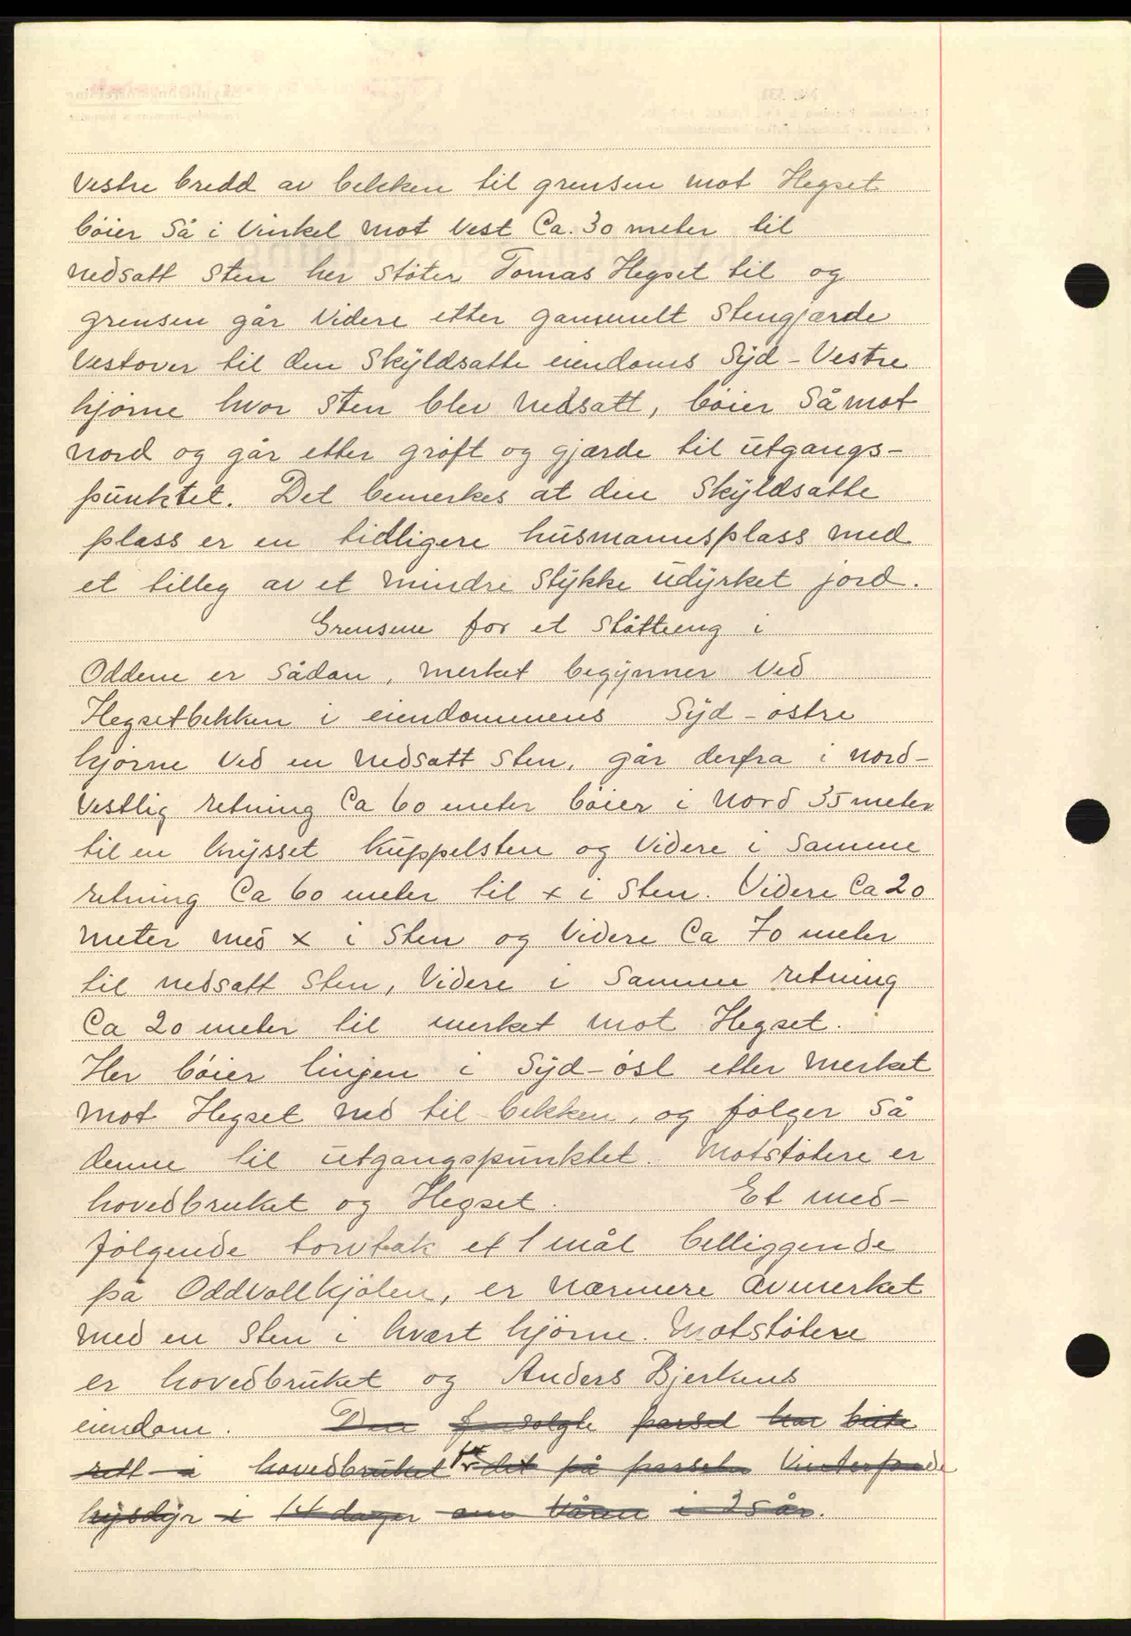 Vestre bredd av bekken til grensen mot Hegset
bøier så i vinkel mot vest Ca. 30 meter til
nedsatt sten her støter Tomas Hegset til og
grensen går videre etter gammelt stengjærde
vestover til den skyldsatte eiendoms Syd-Vestre
hjørne hvor sten blev nedsatt, bøier så mot
nord og går etter grøft og gjærde til utgangs-
punktet. Det bemerkes at den skyldsatte
plass er en tidligere husmannsplass med
et tilleg av et mindre stykke udyrket jord.
Grensene for et slåtteeng i
Oddene er sådan, merket begynner ved
Hegsetbekken i eiendommens Syd-østre
hjørne ved en nedsatt sten, går derfra i nord-
vestlig retning Ca 60 meter bøier i nord 35 meter
til en krysset kuppelsten og videre i samme
retning Ca 60 meter til x i sten. Videre Ca 20
meter med x i sten og videre Ca 70 meter
til nedsatt sten, videre i samme retning
Ca 20 meter til merket mot Hegset.
Her bøier linjen i Syd-øst etter merket
mot Hegset ned til bekken, og følger så
denne til utgangspunktet. Motstøtere er
hovedbruket og Hegset. Et med-
følgende torvtak et 1 mål beliggende
på Oddvollkjølen, er nærmere avmerket
med en sten i hvært hjørne. Motstøtere
er hovedbruket og Anders Bjerkens
eiendom. Den frasolgte parsel har beite
rett i hovedbruket for det på parselen vinterfødde
kysdyr i 14 dager om våren i 25 år.